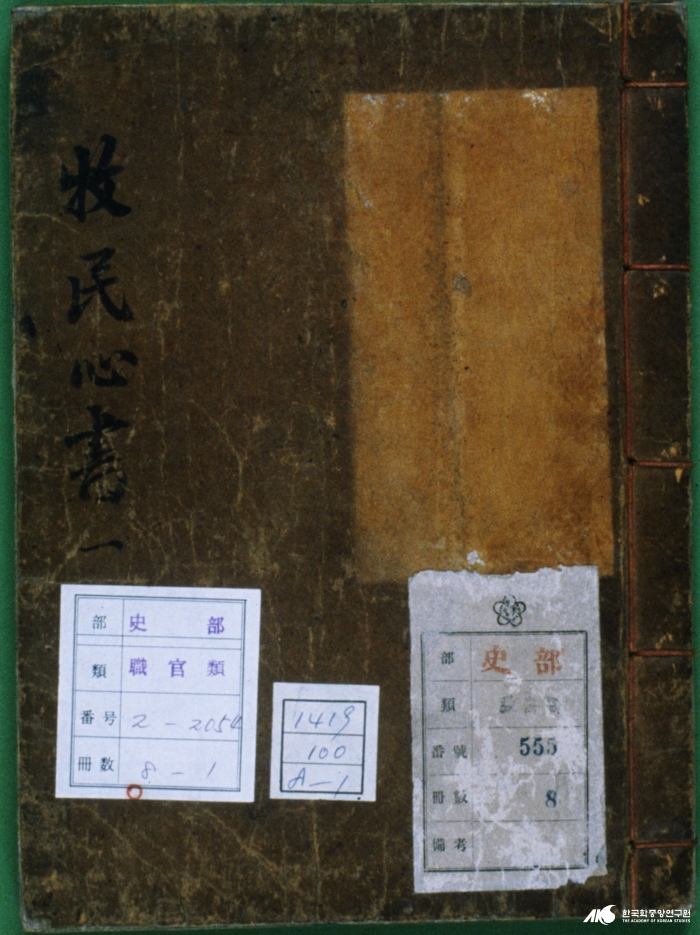 牧民心書 一
部 史部
類 職官類
番号 2-2054
冊数 8-1
1419
100
A-1
部 史部
類
番號 555
冊數 8
備考
한국학중앙연구원
THE ACADEMY OF KOREAN STUDIES